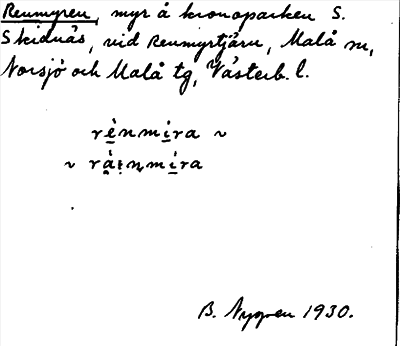 Renmyren, myr å kronoparken S.
Skidnäs, vid Renmyrtjärn, Malå sn,
Norsjö och Malå tg, Västerb. l.
rè̠nmi̠ra ~
~ rà̠i̠nmi̠ra
B. Nygren 1930.